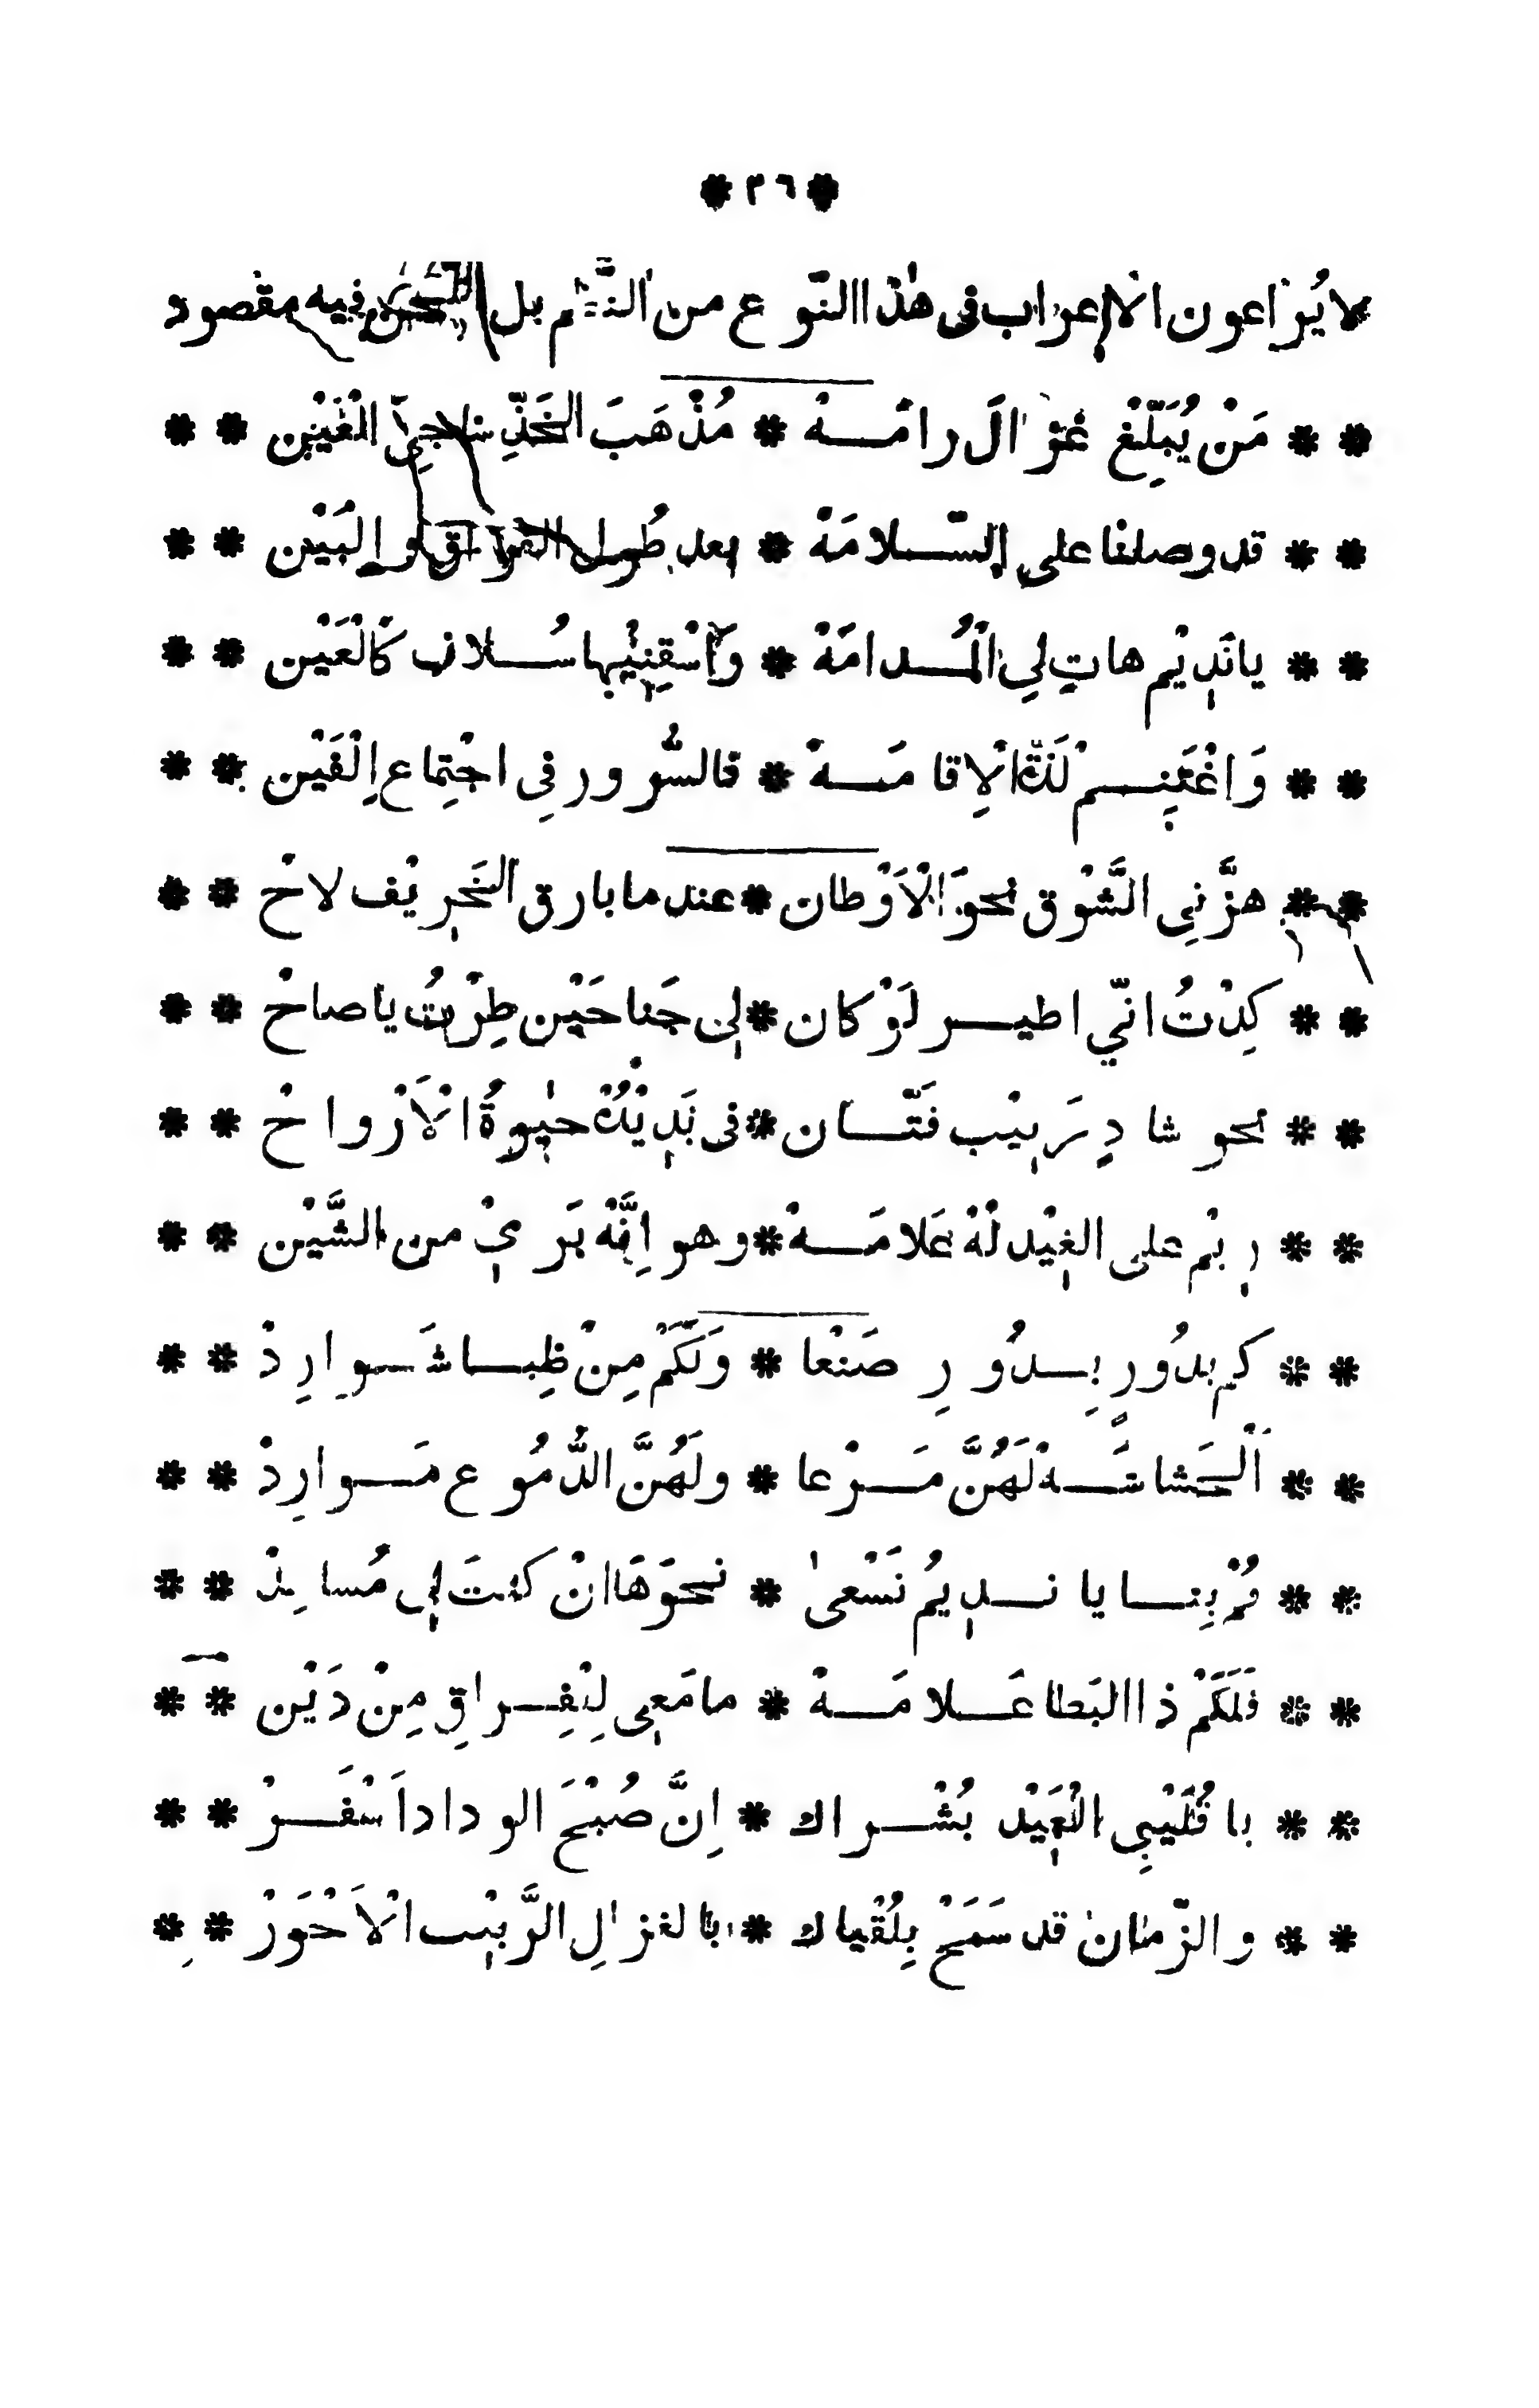 * ٢٦ *
لا يُرَاعون الاعراب فى هٰذا النّوع من النَّظم بل اللحن فيه مقصود
* * مَنْ يُبَلّغْ غزالَ رامَـــهْ * مُذْهَبَ الخَدِّ ساجِىَ الْعَيْن * *
* * قد وصلنا على السّـــلامَهْ * بعد طُول الفراق والبَيْن * *
* * يا نَدِيْم هاتِ لِى الْمُـــدامَهْ * وَاسْقِنِيْها سُـــلاف كَالْعَيْن * *
* * وَاغْتَنِـــمْ لَذّةَ الاِقامَـــهْ * فالسُّرور فِى اجْتِماع اِلْفَيْن * *
* * هزَّنِى الشَّوْق نحوَ الْاَوْطان * عند ما بارق الخَرِيْف لاحْ * *
* * كِدْتُ انّي اطيـــر لَوْ كان * لى جَناحَيْن طِرْتُ يا صاحْ * *
* * نحو شادِ رَبِيْب فَتّـــان * فى يَدِيْهْ حيٰوةُ الْاَرْواحْ * *
* * رِيْم على الغِيْد لَهْ عَلامَـــهْ * وهو اِنَّهْ بَرِيْ من الشَّيْن * *
* * كم بدُورٍ بِـــدُورِ صَنْعا * وَلَكَمْ مِنْ ظِبـــا شَـــوارِدْ * *
* * اَلْحَشاشَـــهْ لَهُنَّ مَـــرْعا * ولَهُنَّ الدُّمُوع مَـــوارِدْ * *
* * قُمْ بِنـــا يا نـــديمُ نَسْعىٰ * نحوَهَا انْ كنتَ لى مُساعِدْ * *
* * فَلَكَمْ ذا البَطا عَـــلامَـــهْ * ما مَعِى لِلْفِـــراقِ مِنْ دَيْن * *
* * يا قُلَيْبِى الْعَيْد بُشْـــراك * اِنَّ صُبْحَ الوداد اَسْفَـــرْ * *
* * والزّمان قد سَمَحْ بِلُقْياك * بالغزالِ الرَّبِيْب الْاَحْوَرْ * *